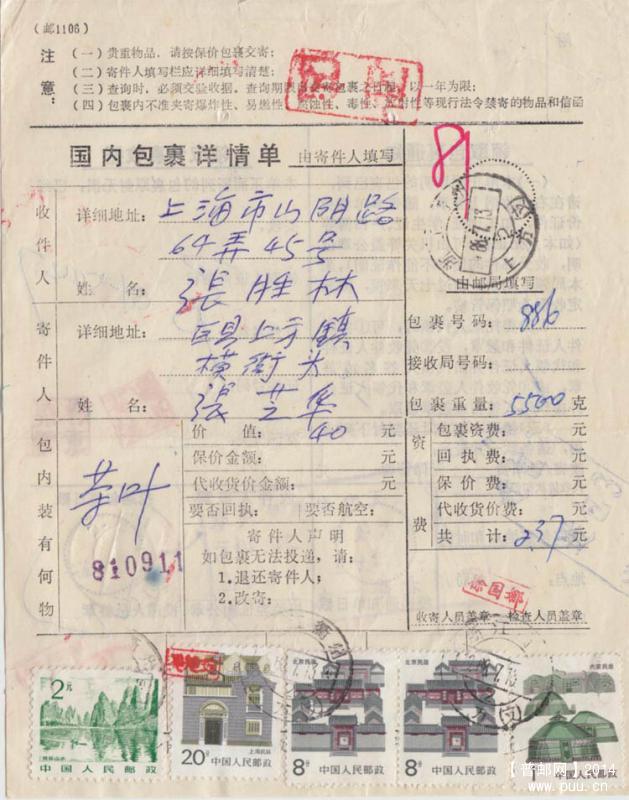 (邮1106)
注意:
(一)贵重物品,请按保价包裹交寄;
(二)寄件人填写栏应详细填写清楚;
(三)查询时,必须交验收据。查询期限自交寄包裹之日起,以一年为限;
(四)包裹内不准夹寄爆炸性、易燃性、腐蚀性、毒性、放射性等现行法令禁寄的物品和信函
国内包裹详情单 由寄件人填写
81
收件人
详细地址: 上海市山阴路
64弄45号
姓 名: 張胜林
寄件人
详细地址: 巨县上方镇
横街头
姓 名: 張芝华
由邮局填写
包裹号码: 886
接收局号码:
包裹重量: 5500 克
包内装有何物
茶叶
810911
价 值: 40 元
保价金额: 元
代收货价金额: 元
要否回执: 要否航空:
寄件人声明
如包裹无法投递,请:
1.退还寄件人;
2.改寄:
资费
包裹资费: 元
回执费: 元
保价费: 元
代收货价费: 元
共 计: 2.37 元
徐国乡
收寄人员盖章 检查人员盖章
2元
中国人民邮政
20分
上海民居
中国人民邮政
北京民居
8分
中国人民邮政
北京民居
8分
中国人民邮政
内蒙民居
1
中国人民邮政
【普邮网】2014
www.puu.cn